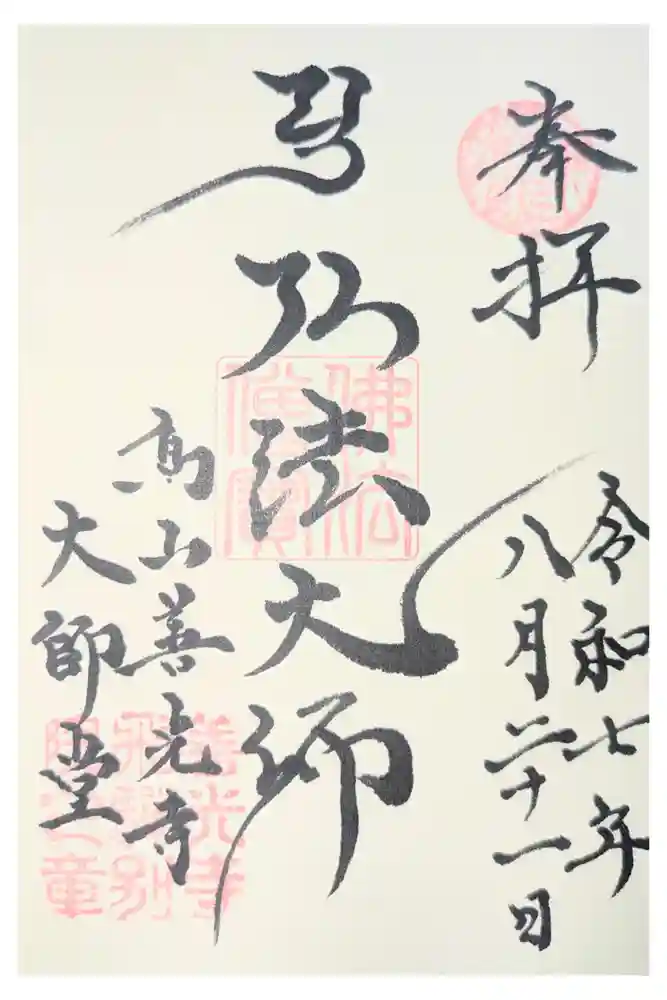 奉拝
令和七年
八月二十一日
弘法大師
佛法
僧寶
高山善光寺
大師堂
善光寺
飛騨別
院之章